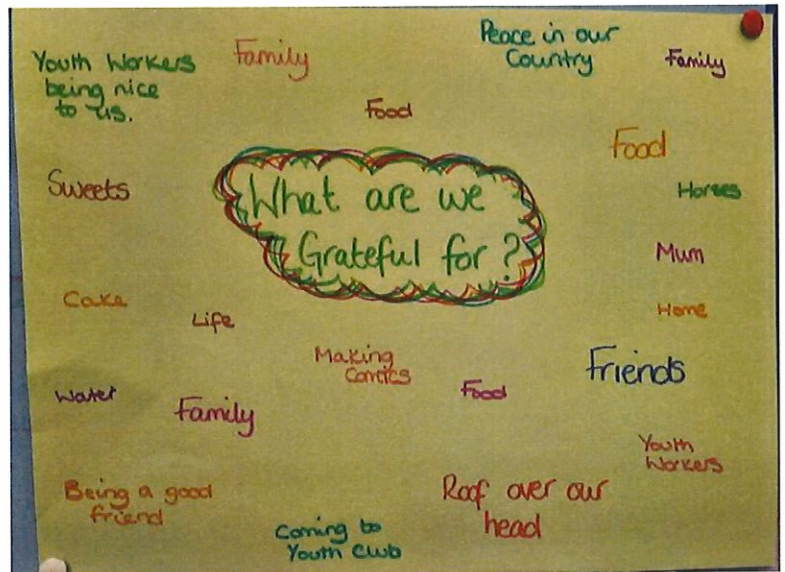 Youth Workers
being nice
to us.
Family
Peace in our
Country
Family
Food
Food
Sweets
What are we
Grateful for?
Horses
Mum
Cake
Life
Home
Making
Comics
Friends
Water
Family
Food
Youth
Workers
Being a good
friend
Roof over our
head
Coming to
Youth Club